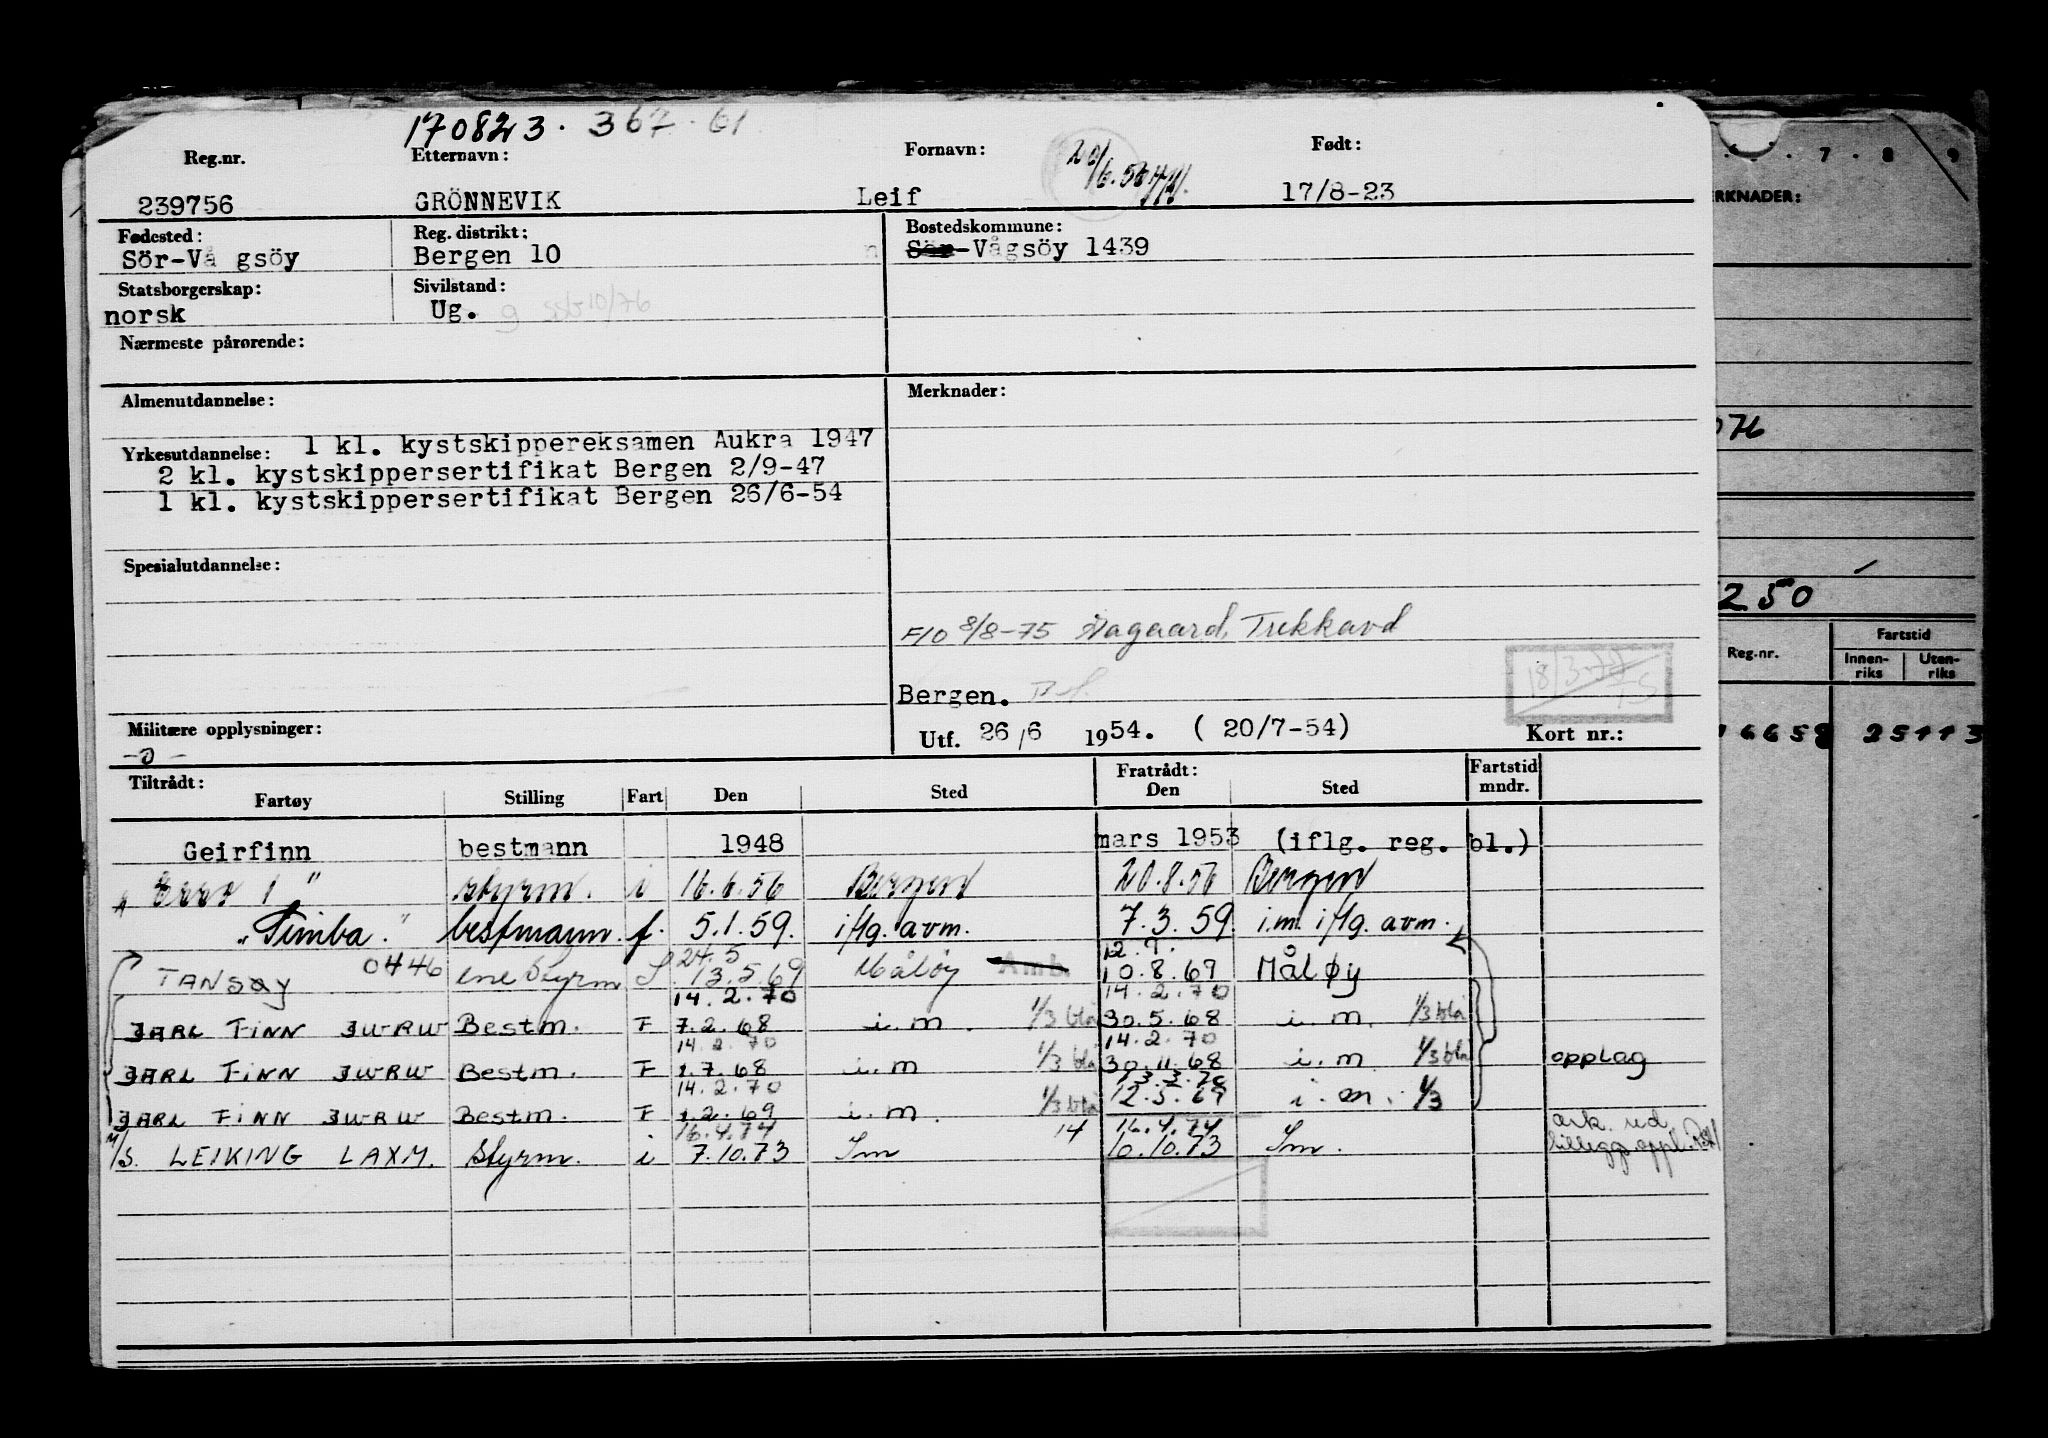 170823. 367. 61
Reg.nr. Etternavn: Fornavn: Født:
239756 GRÖNNEVIK Leif 17/8-23
Fødested: Reg. distrikt: Bostedskommune:
Sör-Vå gsöy Bergen 10 Sör-Vågsöy 1439
Statsborgerskap: Sivilstand:
norsk Ug. g 10/76
Nærmeste pårørende:
Almenutdannelse: Merknader:
Yrkesutdannelse: 1 kl. kystskippereksamen Aukra 1947
2 kl. kystskippersertifikat Bergen 2/9-47
1 kl. kystskippersertifikat Bergen 26/6-54
Spesialutdannelse:
F/O 8/8-75
Bergen.
Militære opplysninger: Utf. 26/6 1954. ( 20/7-54) Kort nr.:
-0-
Tiltrådt: Fratrådt: Fartstid
Fartøy Stilling Fart Den Sted Den Sted mndr.
Geirfinn bestmann 1948 mars 1953 (iflg. reg. bl.)
styrm. i 16.6.56 Bergen 20.8.56 Bergen
"Simba." bestmann. f. 5.1.59. iflg. avm. 7.3.59. i.m. iflg. avm.
24.5 12.7.
TANSØY 0446 ene Styrm S 13.5.69 Måløy Amb. 10.8.69 Måløy
14.2.70 14.2.70
JARL FINN JWRW Bestm. F 7.2.68 i.m. 1/3 blå 30.5.68 i.m. 1/3 blå
14.2.70 14.2.70
JARL FINN JWRW Bestm. F 1.7.68 i.m 1/3 blå 30.11.68 i.m 1/3 blå opplag
14.2.70 13.3.70
JARL FINN JWRW Bestm. F 1.2.69 i.m. 1/3 blå 12.5.69 i.m. 1/3
16.4.74 14 16.4.74 ark. ved
M/S. LEIKING LAXM. Styrm. i 7.10.73 Im 10.10.73 Im.
7 . 8 . 9
ERKNADER:
076
250
Fartstid
Reg.nr. Innen-riks Uten-riks
16658 25113